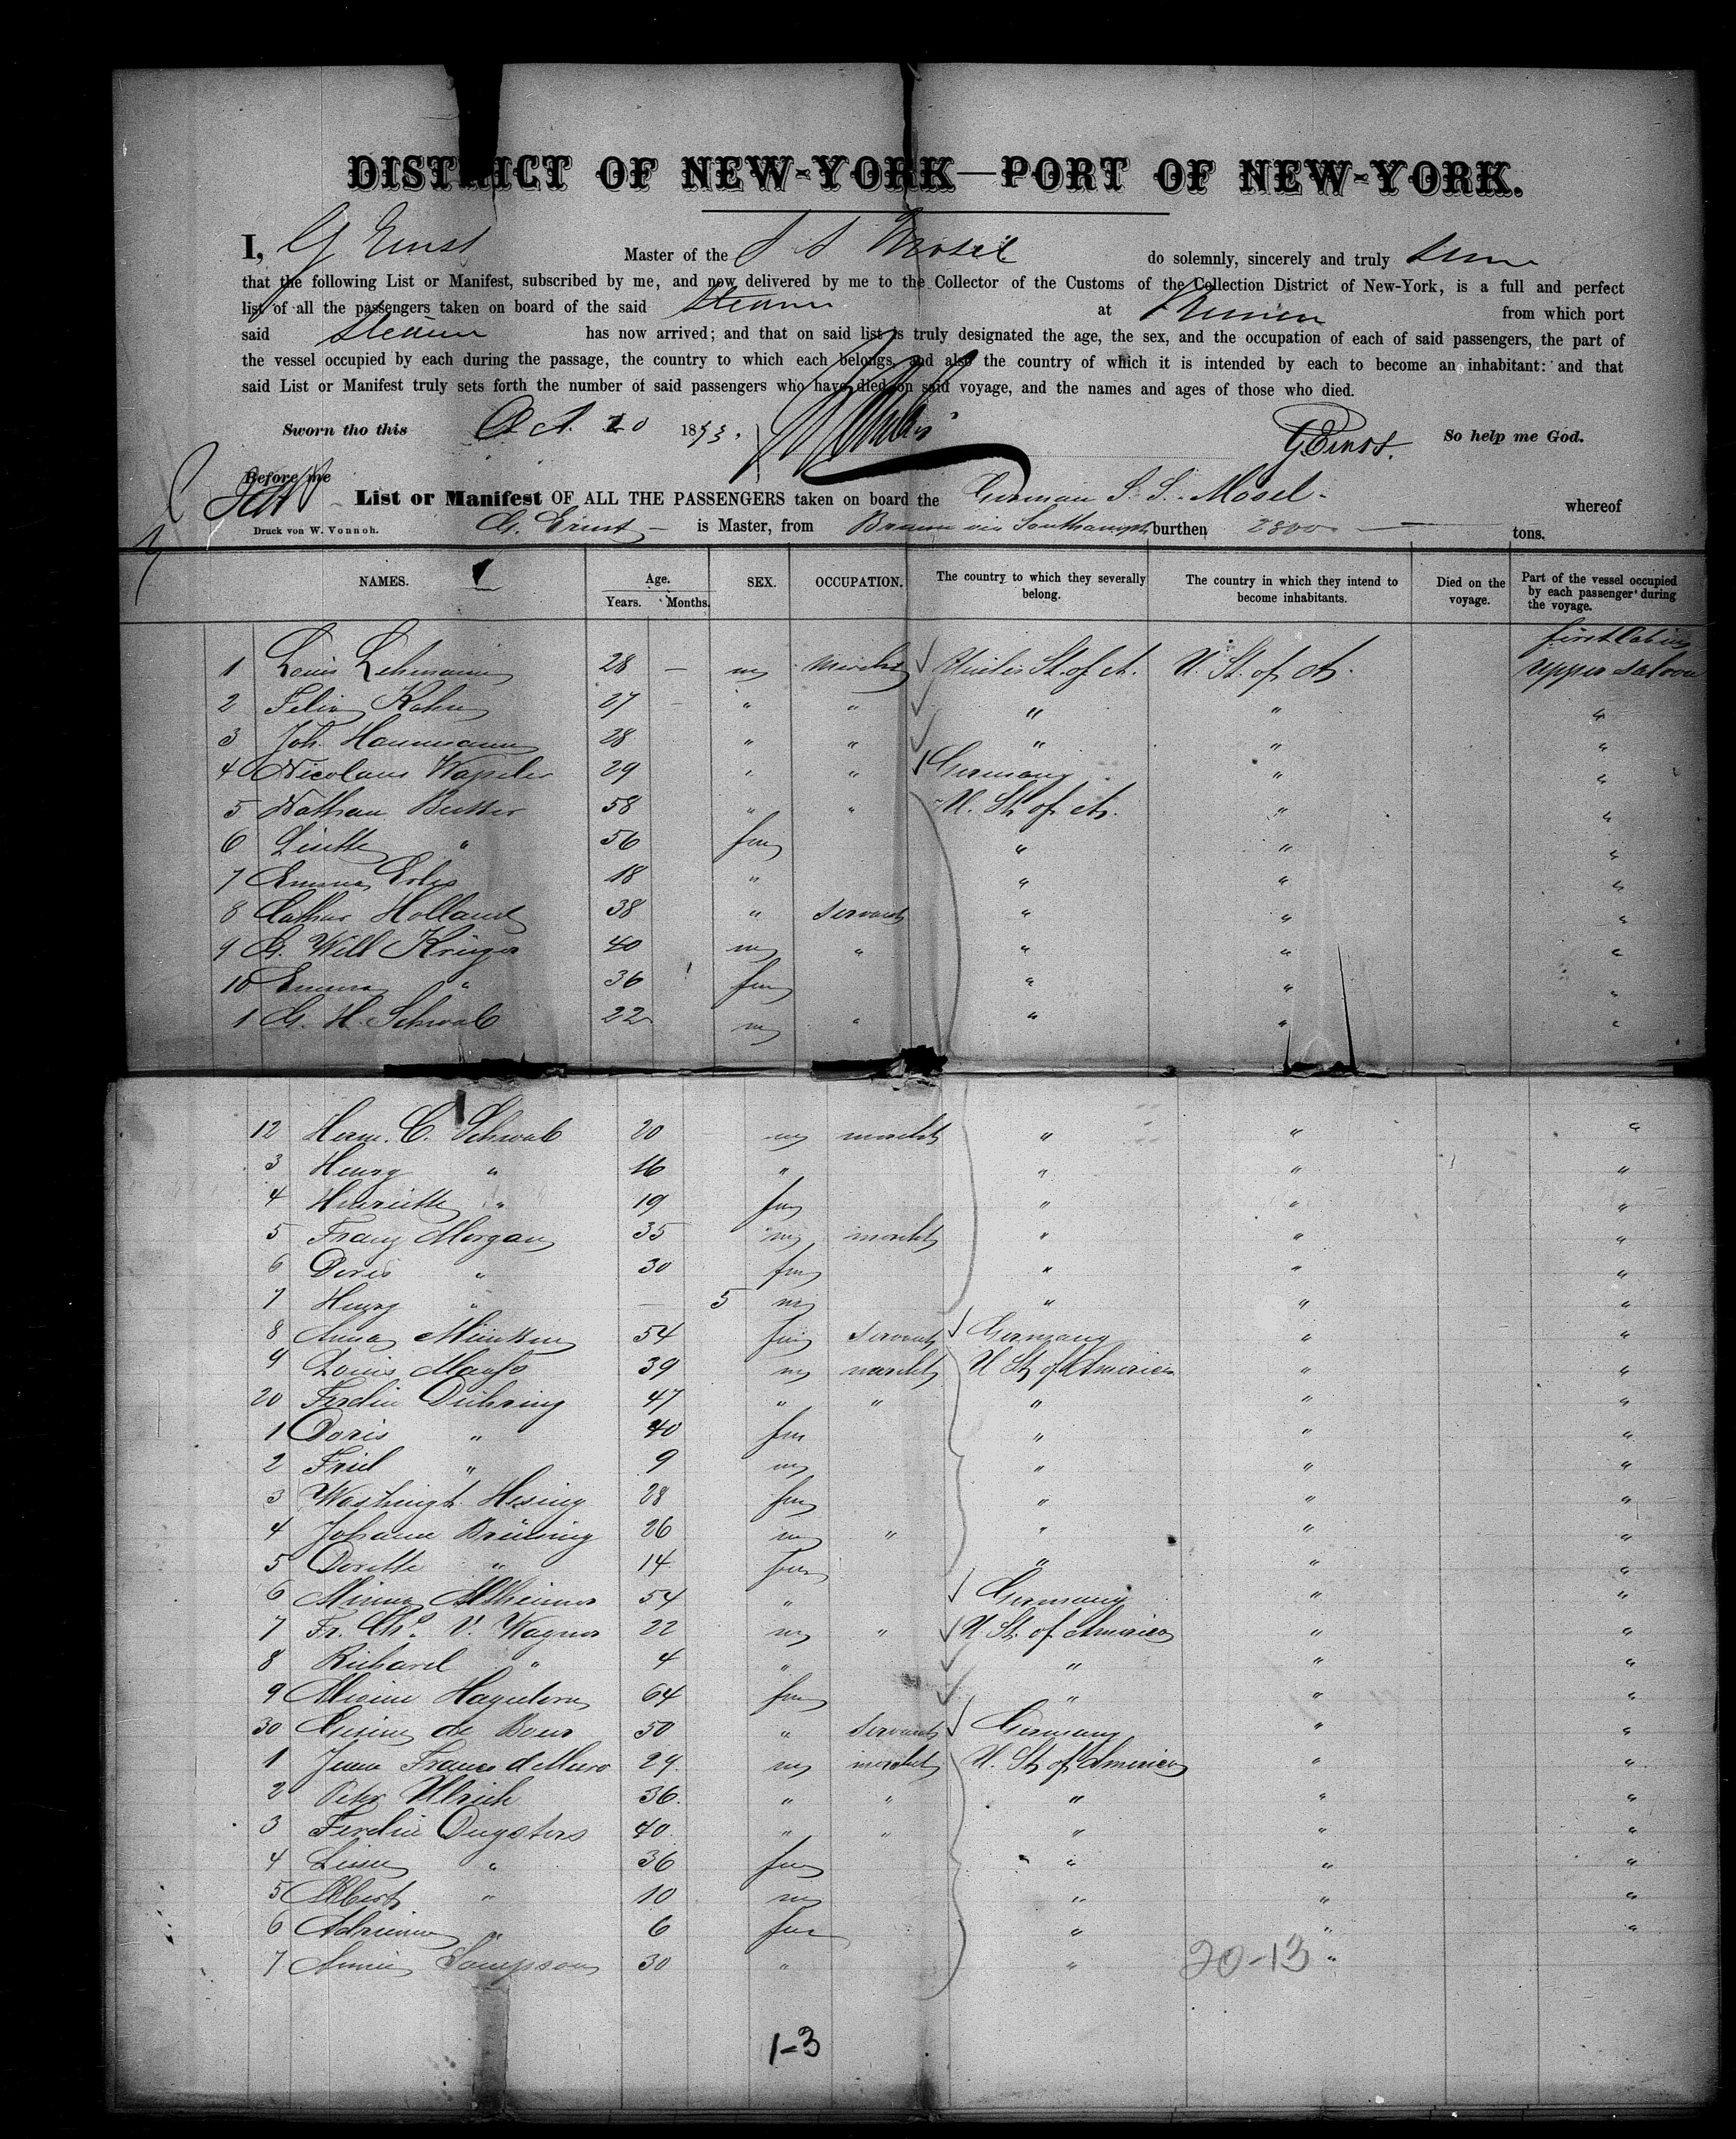 DISTRICT OF NEW-YORK—PORT OF NEW-YORK.
I, G Ernst Master of the S S Mosel do solemnly, sincerely and truly
that the following List or Manifest, subscribed by me, and now delivered by me to the Collector of the Customs of the Collection District of New-York, is a full and perfect
list of all the passengers taken on board of the said Steamer at Bremen from which port
said Steamer has now arrived; and that on said list is truly designated the age, the sex, and the occupation of each of said passengers, the part of
the vessel occupied by each during the passage, the country to which each belongs, and also the country of which it is intended by each to become an inhabitant: and that
said List or Manifest truly sets forth the number of said passengers who have died on said voyage, and the names and ages of those who died.
Sworn tho this Oct. 20 1873. G Ernst. So help me God.
Before me
List or Manifest OF ALL THE PASSENGERS taken on board the German S. S. Mosel whereof
Druck von W. Vonnoh. G. Ernst is Master, from Bremen via Southampt. burthen 2800 tons.
NAMES. Age. Years. Months. SEX. OCCUPATION. The country to which they severally belong. The country in which they intend to become inhabitants. Died on the voyage. Part of the vessel occupied by each passenger during the voyage.
first Cabin
1 Louis Lehmann 28 — m United St. of A. U. St. of A. upper saloon
2 Felix Kahn 27 - " " " " "
3 Joh. Hanemann 28 " " " " "
4 Nicolaus Wapeler 29 " " Germany " "
5 Nathan 58 " " U. St. of A. " "
6 Lisette " 56 fm " " "
7 Emma 18 " " " "
8 Cathar Holland 38 " Servant " " "
9 G. Will Krüger 40 m " " " "
10 Emma " 36 fm " " "
1 G. H. Schwab 22 m " " " "
12 Herm. C. Schwab 20 m " " "
3 Henry " 16 " " " "
4 Henriette " 19 fm " " "
5 Franz Morgan 35 m " " "
6 Doris " 30 fm " " "
7 Henry " — 5 m " " "
8 Anna 54 fm Servant Germany " "
9 Louis 39 m U St of America " "
20 Ferdin Dühring 47 " " " " "
1 Doris " 40 fm " " "
2 Fried " 9 m " " "
3 Washingt. Hesing 28 fm " " "
4 Johann Brüning 26 m " " " "
5 Dorette " 14 fm " " "
6 Minna Altheimer 54 " Germany " "
7 Fr. Chr. V. Wagner 22 m " U. St. of America " "
8 Richard " 4 " " " "
9 64 fm " " "
30 Gesine de Boer 50 " Servant Germany " "
1 29 m U. St of America " "
2 Peter Ullrich 36. " " " " "
3 Ferdin Duysters 40 " " " " "
4 " 36 fm " " "
5 Albert " 10 m " " "
6 " 6 fm " " "
7 Annie Sampson 30 " " "
20-13
1-3